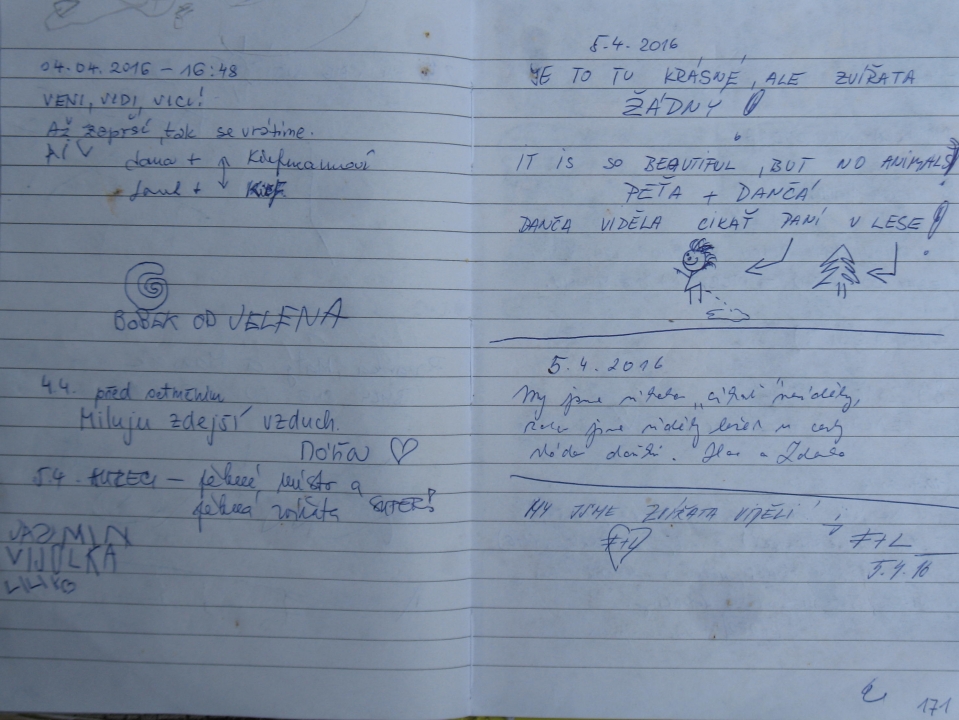 04.04.2016 – 16:48
VENI, VIDI, VICI!
Až zaprší, tak se vrátíme.
Jana +
+
BOBEK OD JELENA
4.4. před setměním
Miluju zdejší vzduch.
Dóňa
5.4. – pěkné místo a
pěkná zvířata SUPER!
JAZMIN
VIJULKA
5.4. 2016
JE TO TU KRÁSNÉ, ALE ZVÍŘATA
ŽÁDNÝ!
IT IS SO BEAUTIFUL, BUT NO ANIMALS!
PEŤA + DANČA
DANČA VIDĚLA CIKAŤ PANÍ V LESE!
5.4.2016
My jsme nikoho „ neviděly,
jsme viděly u cesty
. a Zdena
MY JSME ZVÍŘATA VIDĚLI
F+L
F+L
5.4.16
171